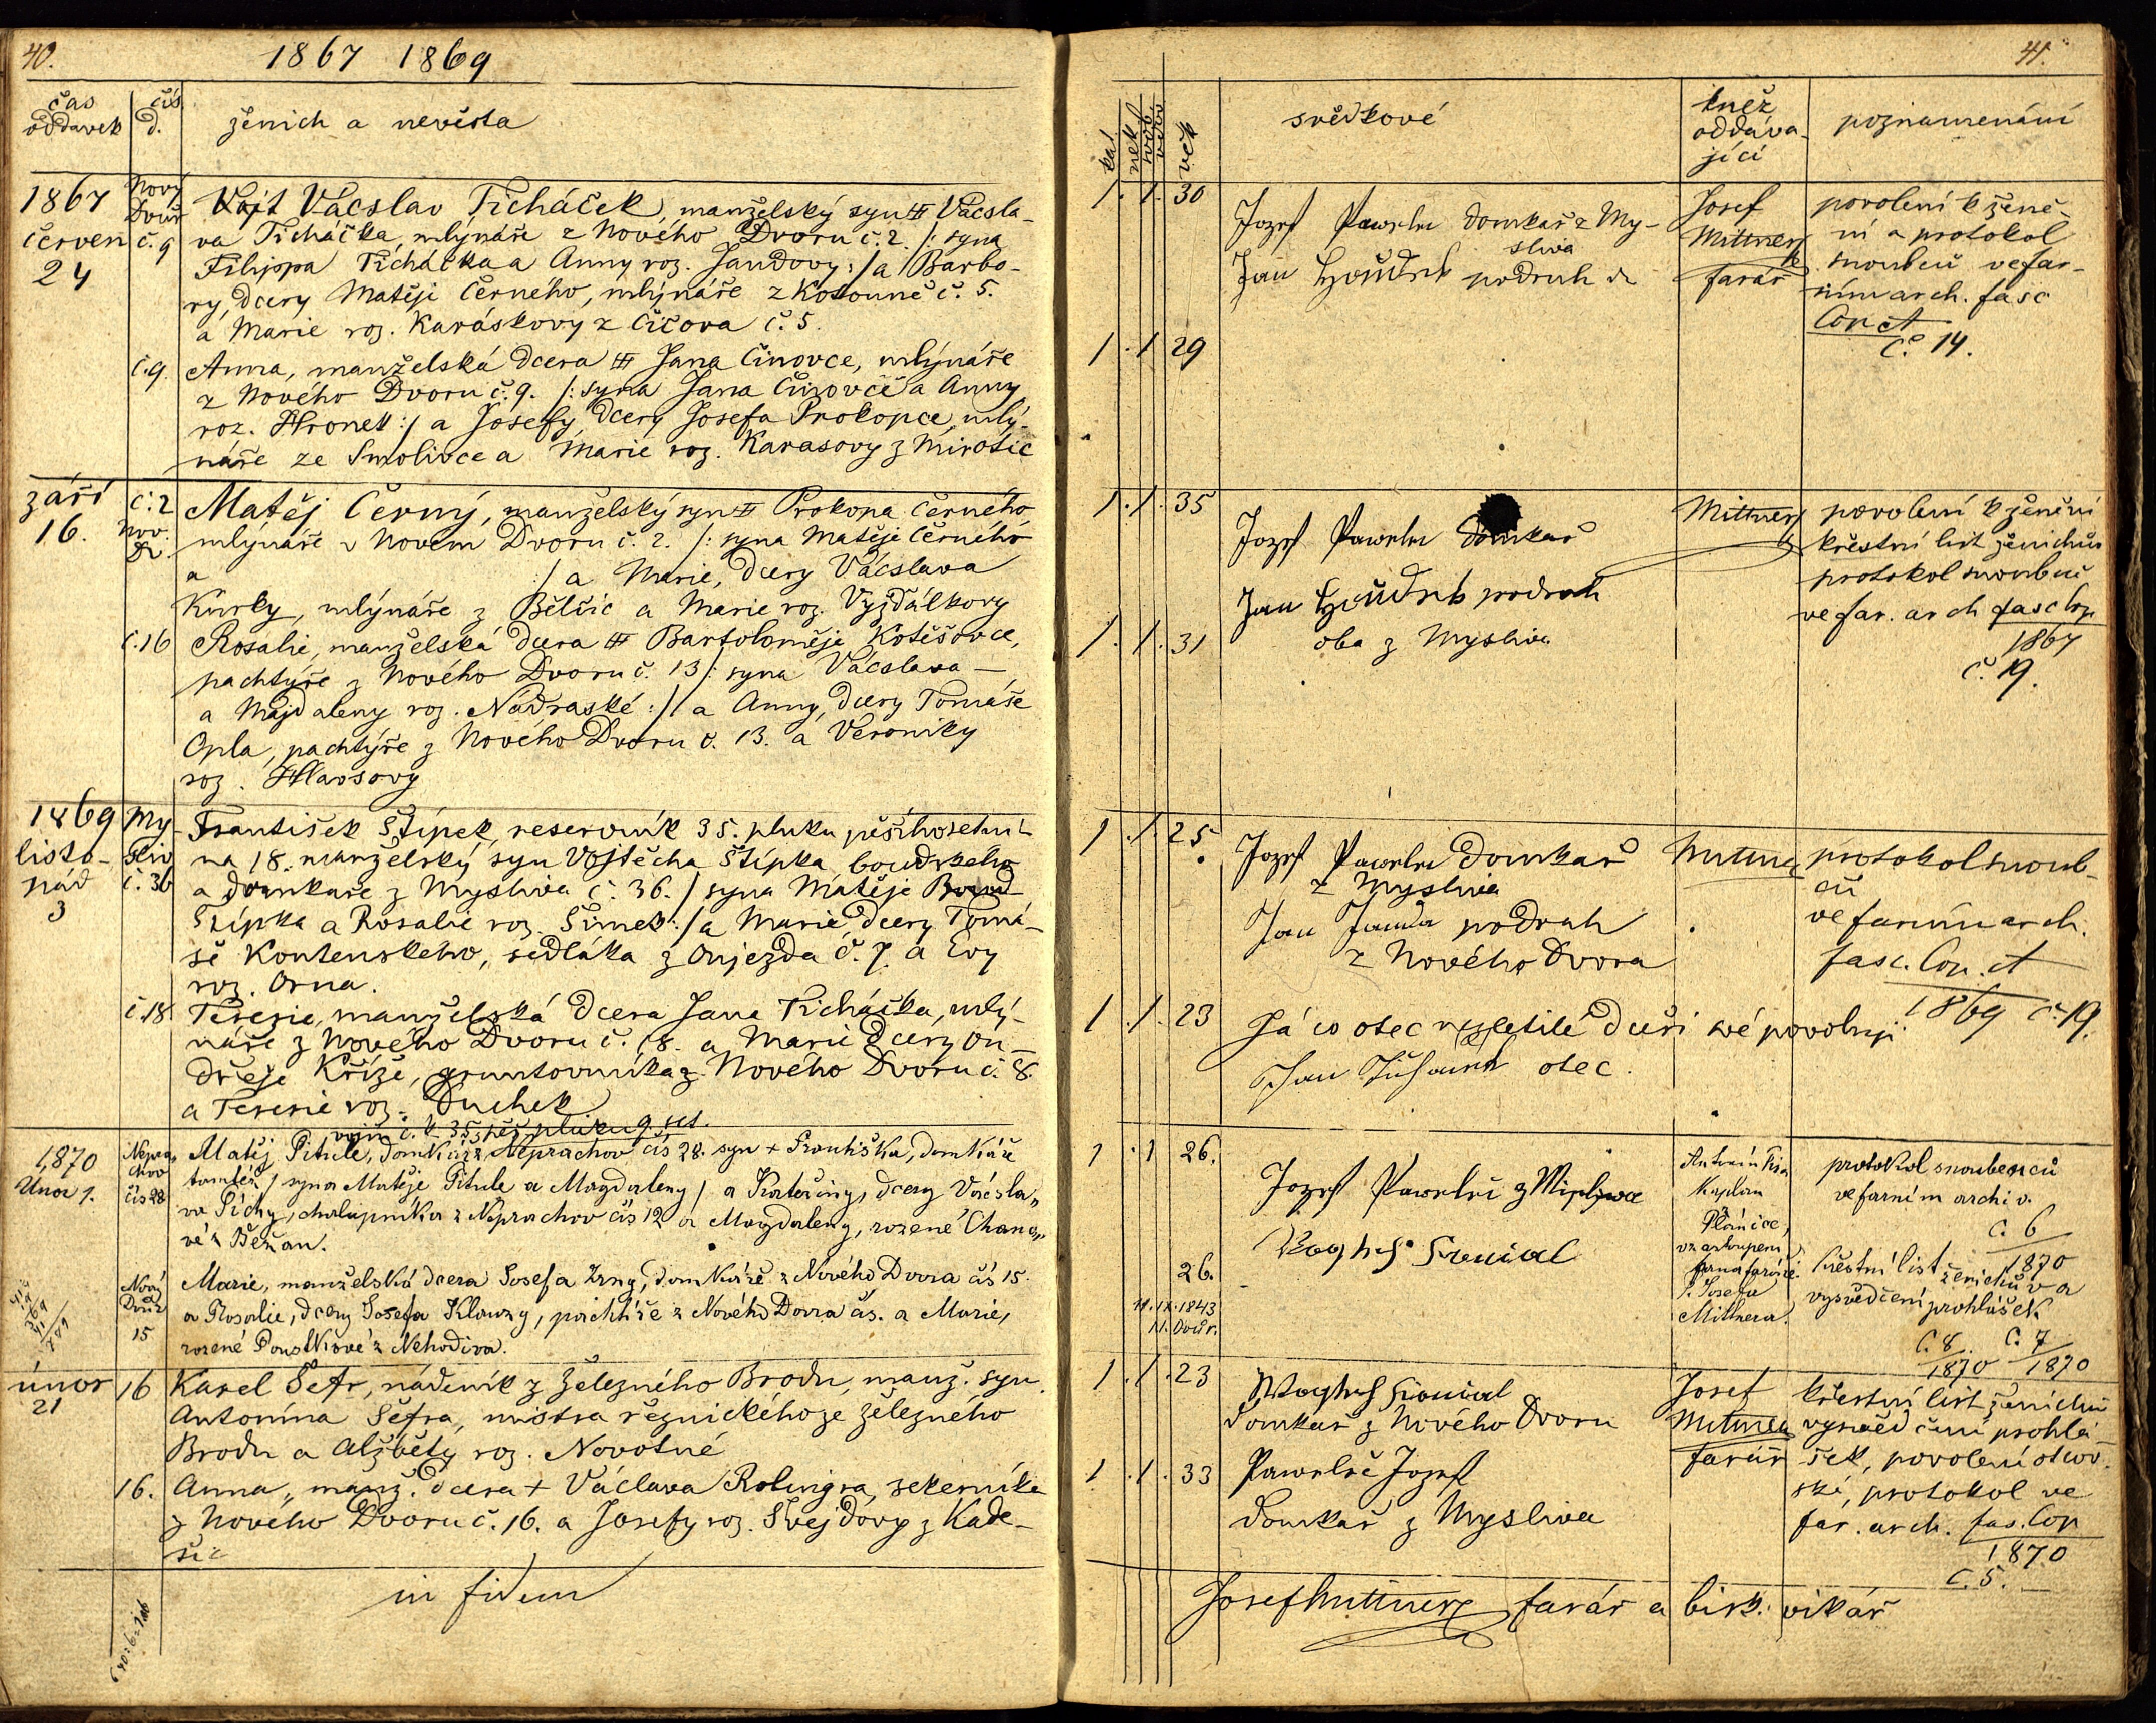 40.
1867 1869
čas oddavek
čís d.
ženich a nevěsta
1867
červen
24
Nový
Dvůr
č. 9
Vojt Vácslav Ticháček, manželský syn Vácsla-
va Ticháčka, mlynáře z Nového Dvoru č. 2. /: syna
Filippa Ticháčka a Anny roz. Jandovy :/ a Barbo-
ry, dcery Matěje Černého, mlýnáře z Kotouně č. 5.
a Marie roz. Karáskovy z Čičova č. 5.
č. 9.
Anna, manželská dcera Jana Činovce, mlýnáře
z Nového Dvoru č. 9. /: syna Jana Činovce a Anny
roz. Hronek :/ a Josefy, dcery Josefa Prokopce, mlý-
náře ze Smolivce a Marie roz. Karasovy z Mirotic
září
16.
č. 2
Nov.
Dv.
Matěj Černý, manželský syn Prokopa Černého
mlýnáře v Novém Dvoru č. 2. /: syna Matěje Černého
a :/ a Marie, dcery Václava
Kurky, mlýnáře z Bělčic a Marie roz. Vyjdálkovy
č. 16
Rosalie, manželská dcera Bartoloměje Kotěšovce,
pachtýře z Nového Dvoru č. 13 /: syna Vácslava
a Majdaleny roz. Nádraské :/ a Anny, dcery Tomáše
Opla, pachtýře z Nového Dvoru č. 13. a Veroniky
roz. Hlavsovy
1869
listo-
pád
3
My-
sliv
č. 36
František Štípek, reservník 35. pluku pěšího setni-
na 18. manželský syn Vojtěcha Štípka
a domkáře z Mysliva č. 36. / syna Matěje
Štípka a Rosalie roz. Šimek :/ a Marie dcery Tomá-
še Kontenskeho, sedláka z Oujezda č. 7. a Evy
roz. Orna.
č. 18
Teresie, manželská dcera Jana Ticháčka, mlý-
náře z Nového Dvoru č. 18. a Marie dcery On-
dřeje Kříže, gruntovníka z Nového Dvoru č. 8.
a Teresie roz. Duchek
vojín č. l. 35 pěš. pluku 9 set.
1870
Února 1.
Nepra-
chov
čís 28
Matěj Pitule, domkář z Neprachov čís 28. syn + Františka, domkáře
tamtéž / syna Matěje Pitule a Magdaleny / a Kateřiny, dcery Vácsla-
va Píchy, chalupníka z Neprachov čís 12 a Magdaleny, rozené Chano-
vé z Běšan.
Nový
Dvůr
15
Marie, manželská dcera Josefa Zrny, domkáře z Nového Dvora čís 15.
a Rosalie, dcery Josefa Klouzy, pachtíře z Nového Dvora čís. a Marie,
rozené Poustkové z Nehodiva.
únor
21
16
Karel Šefr, nádeník z Železného Brodu, manž. syn
Antonína Šefra, mistra řeznického ze Železného
Brodu a Alžběty roz. Novotné
16.
Anna, manž. dcera + Václava Rolingra, sekerníka
z Nového Dvoru č. 16. a Josefy roz. Švejdovy z Kade-
šic
in fidem
41.
věk
svědkové
kněz
oddáva-
jící
poznamenání
1. 1. 30
Jozef Pawelec domkař z My-
sliva
Jan podruh
Josef
Mittner
farář
povolení k žene-
ní a protokol
snoubců ve far-
ním arch. fasc
Cop. et
č. 14.
1 . 1 29
1 . 1. 35
Jozef Pawelec domkař
Jan podruh
oba z Mysliva
Mittner
povolení k ženění
křestní list ženichův
protokol snoubců
ve far. arch fasc Cop
1867
č. 19.
1 . 1. 31
1 . 1. 25
Jozef Pawelec domkař
z Mysliva
Jan Janda podruh
z Nového Dvora
Mittner
protokol snoub-
ců
ve farním arch.
fasc. Cop. et
1869 č. 19.
1 . 1. 23
Já co otec nezletilé dceři své povoluji
Jan Ticháček otec.
1 . 1 26.
Jozef Pawelec z Mysliwa
Antonín
Kaplan
z Plánice,
v zastoupení
pana faráře
P. Josefa
Mittnera.
protokol snoubenců
ve farním archiv.
č. 6
1870
křestní list ženichův a
vysvědčení prohlášek
č. 8 č. 7
1870 1870
26.
11. IX. 1843
N. Dvůr.
1 . 1. 23
domkař z Nového Dvoru
Josef
Mittner
farář
křestní list ženichův
vysvědčení prohlá-
šek, povolení otcov-
ské, protokol ve
far. arch. fas. Cop
1870
č. 5.
1 . 1. 33
Pawelec Jozef
domkař z Mysliva
Josef Mittner farář a bisk. vikář